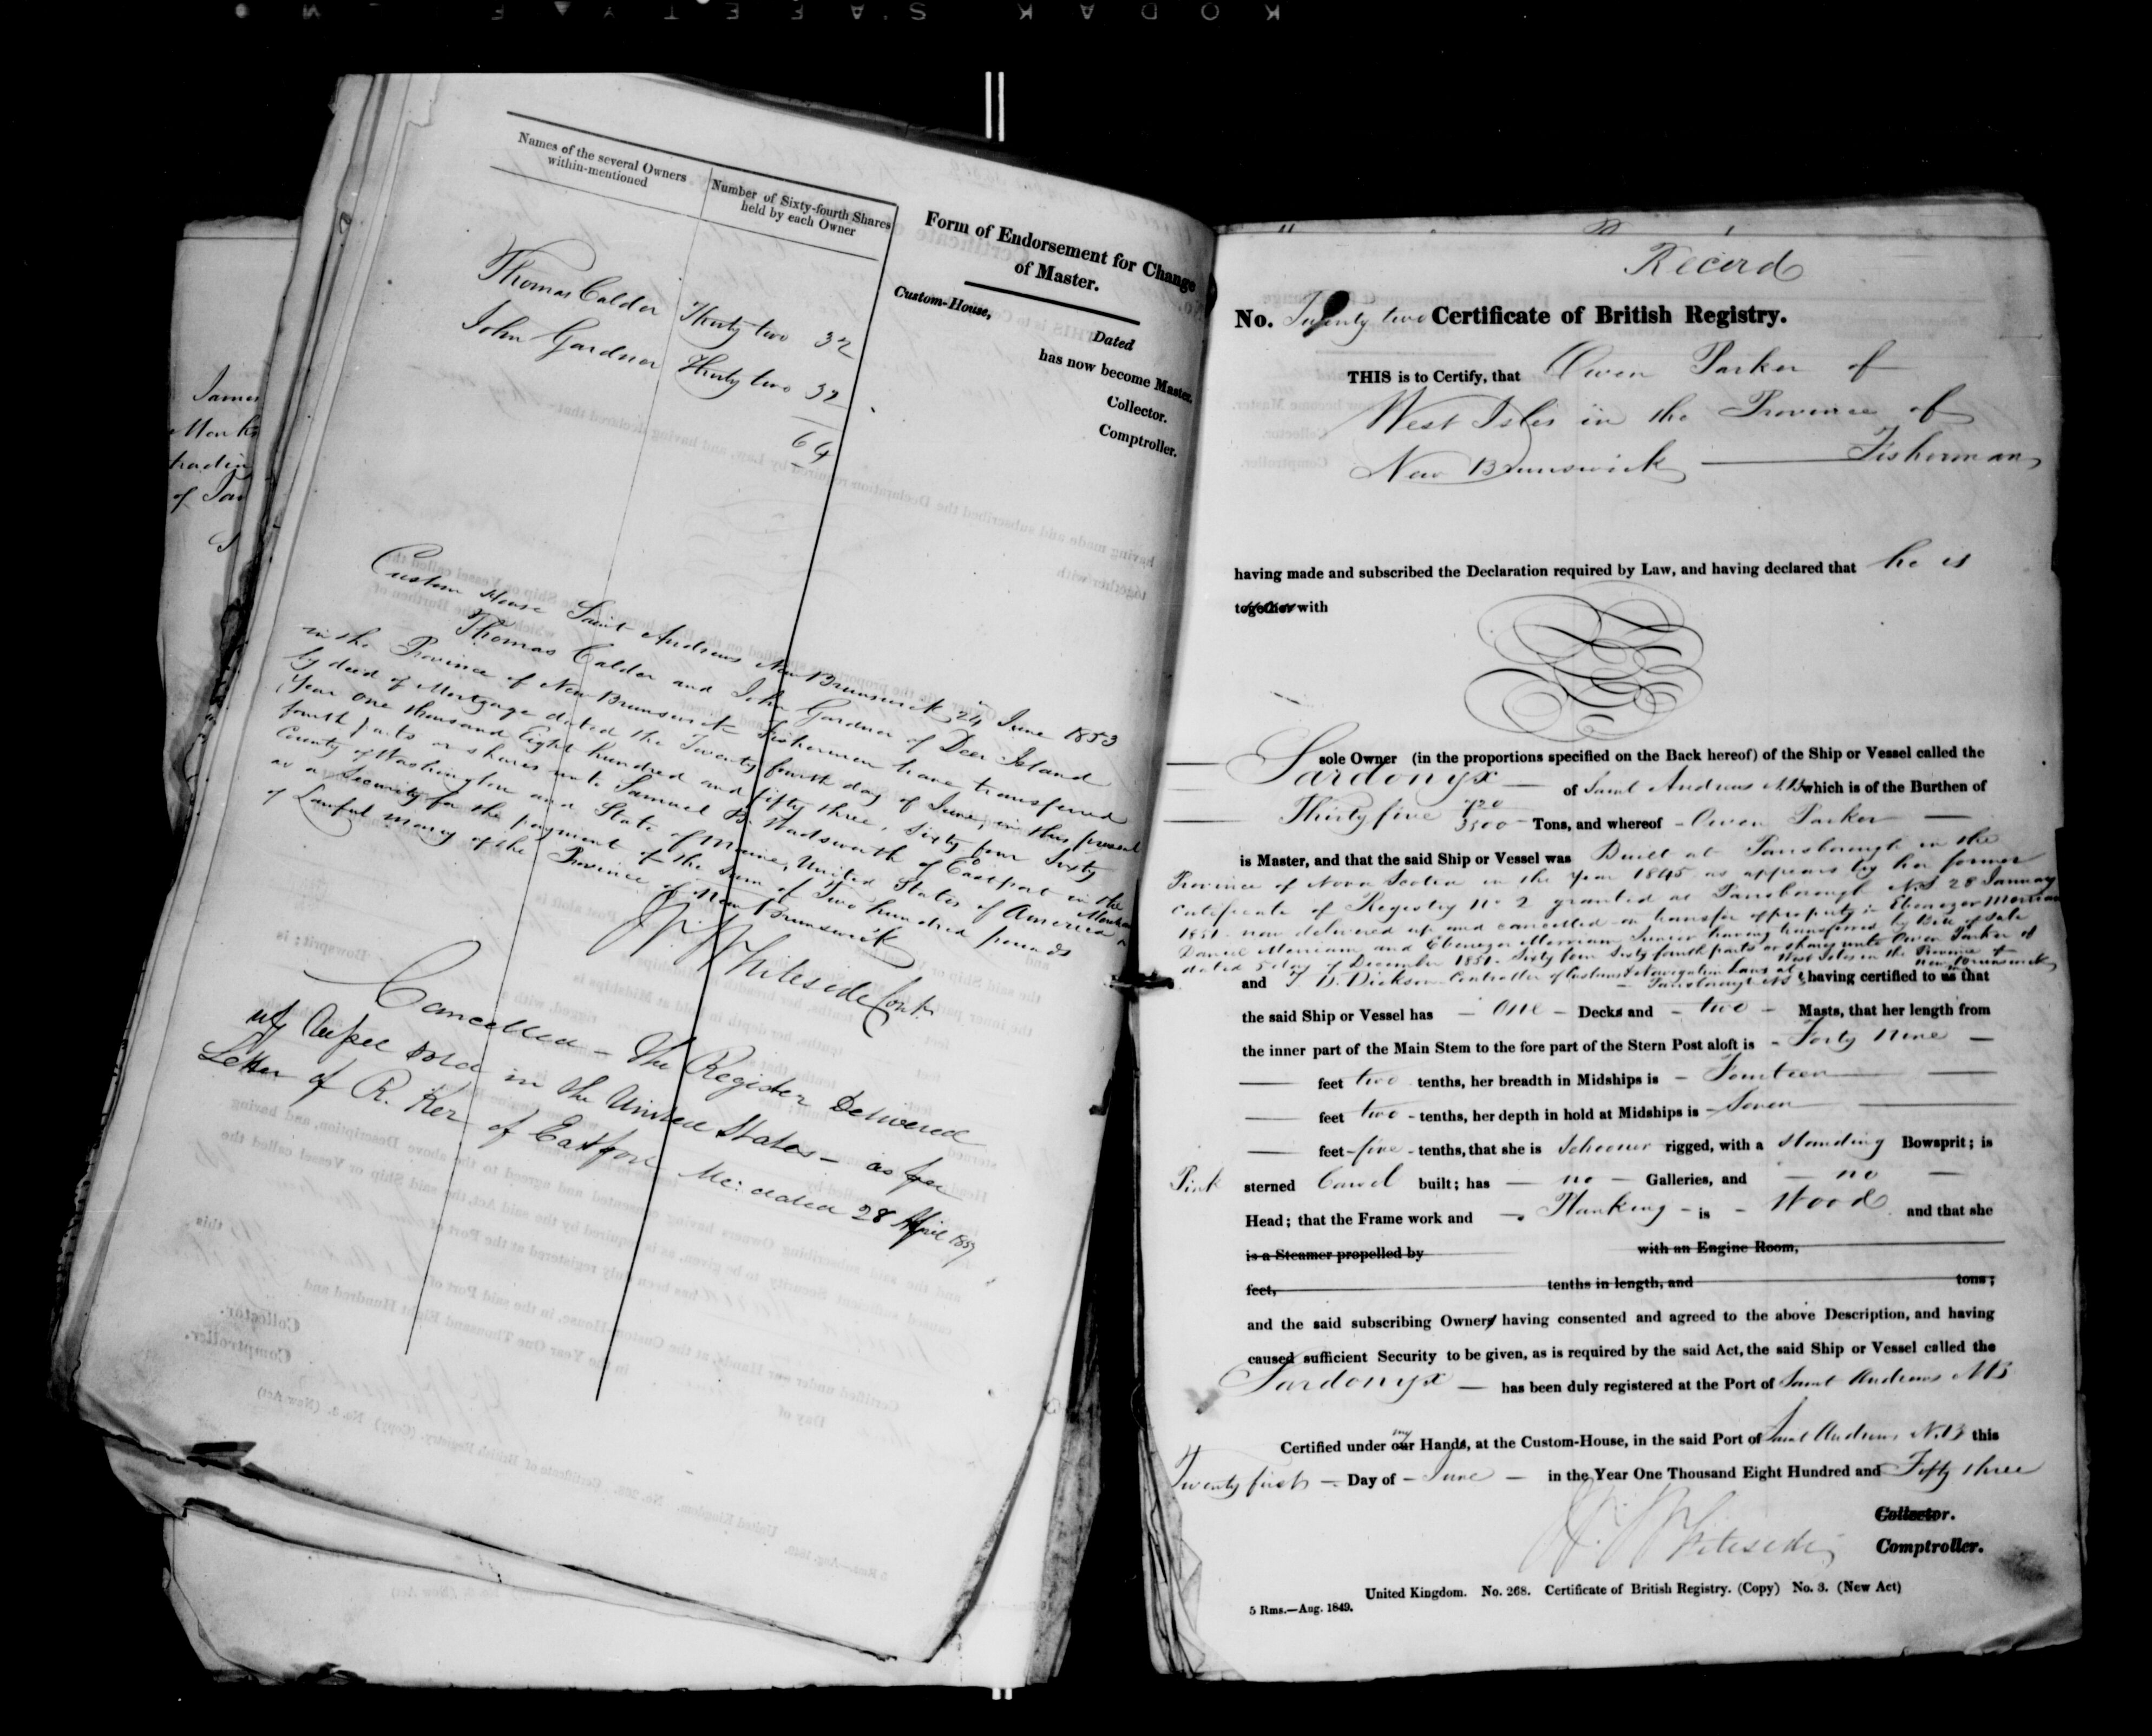 KODAK SAFETY
Names of the several Owners
within-mentioned
Number of Sixty-fourth Shares
held by each Owner
Thomas Calder Thirty two 32
John Gardner Thirty two 32
64
Form of Endorsement for Change
of Master.
Custom-House,
Dated
has now become Master.
Collector.
Comptroller.
Custom House Saint Andrews New Brunswick 24 June 1853
Thomas Calder and John Gardner of Deer Island
in the Province of New Brunswick Fishermen have transferred
by deed of Mortgage dated the Twenty fourth day of June, in this present
Year One thousand Eight hundred and fifty three, Sixty four Sixty
fourth parts or shares unto Samuel B. Wadsworth of Eastport in the
County of Washington and State of Maine, United States of America
as a Security for the payment of the sum of Two hundred pounds
of Lawful money of the Province of New Brunswick
W. Whiteside Cont
Cancelled - The Register Delivered
up Vessel Sold in the United States - as per
Letter of R. Ker of Eastport Me: dated 28 April 1857
James
of
Record
No. Twenty two Certificate of British Registry.
THIS is to Certify, that Owen Parker of
West Isles in the Province of
New Brunswick Fisherman
having made and subscribed the Declaration required by Law, and having declared that he is
together with
sole Owner (in the proportions specified on the Back hereof) of the Ship or Vessel called the
Sardonyx of Saint Andrews NB which is of the Burthen of
Thirty five 720/3500 Tons, and whereof Owen Parker
is Master, and that the said Ship or Vessel was Built at Parrsborough in the
Province of Nova Scotia in the Year 1845 as appears by her former
Certificate of Registry No 2 granted at Parrsborough N.S 28 January
1851 now delivered up and cancelled on transfer of property - Ebenezer Merriam
Daniel Merriam and Ebenezer Merriam Junior having transferred by Bill of Sale
dated 5 day of December 1851. Sixty four Sixty fourth parts or shares unto Owen Parker of
West Isles in the Province of
New Brunswick
and D. Dickson Controller of Customs & Navigation Laws at Parrsborough NS having certified to us that
the said Ship or Vessel has - one - Decks and - two - Masts, that her length from
the inner part of the Main Stem to the fore part of the Stern Post aloft is - Forty Nine -
feet two tenths, her breadth in Midships is - Fourteen
feet two - tenths, her depth in hold at Midships is - Seven
feet - five - tenths, that she is Schooner rigged, with a standing Bowsprit; is
Pink sterned Carvel built; has - no - Galleries, and - no -
Head; that the Frame work and - Planking - is - Wood and that she
is a Steamer propelled by with an Engine Room,
feet, tenths in length, and tons;
and the said subscribing Owners having consented and agreed to the above Description, and having
caused sufficient Security to be given, as is required by the said Act, the said Ship or Vessel called the
Sardonyx - has been duly registered at the Port of Saint Andrews NB
Certified under our my Hands, at the Custom-House, in the said Port of Saint Andrews N.B this
Twenty first - Day of - June - in the Year One Thousand Eight Hundred and Fifty three
W. Whiteside
Collector.
Comptroller.
United Kingdom. No. 268. Certificate of British Registry. (Copy) No. 3. (New Act)
5 Rms.—Aug. 1849.